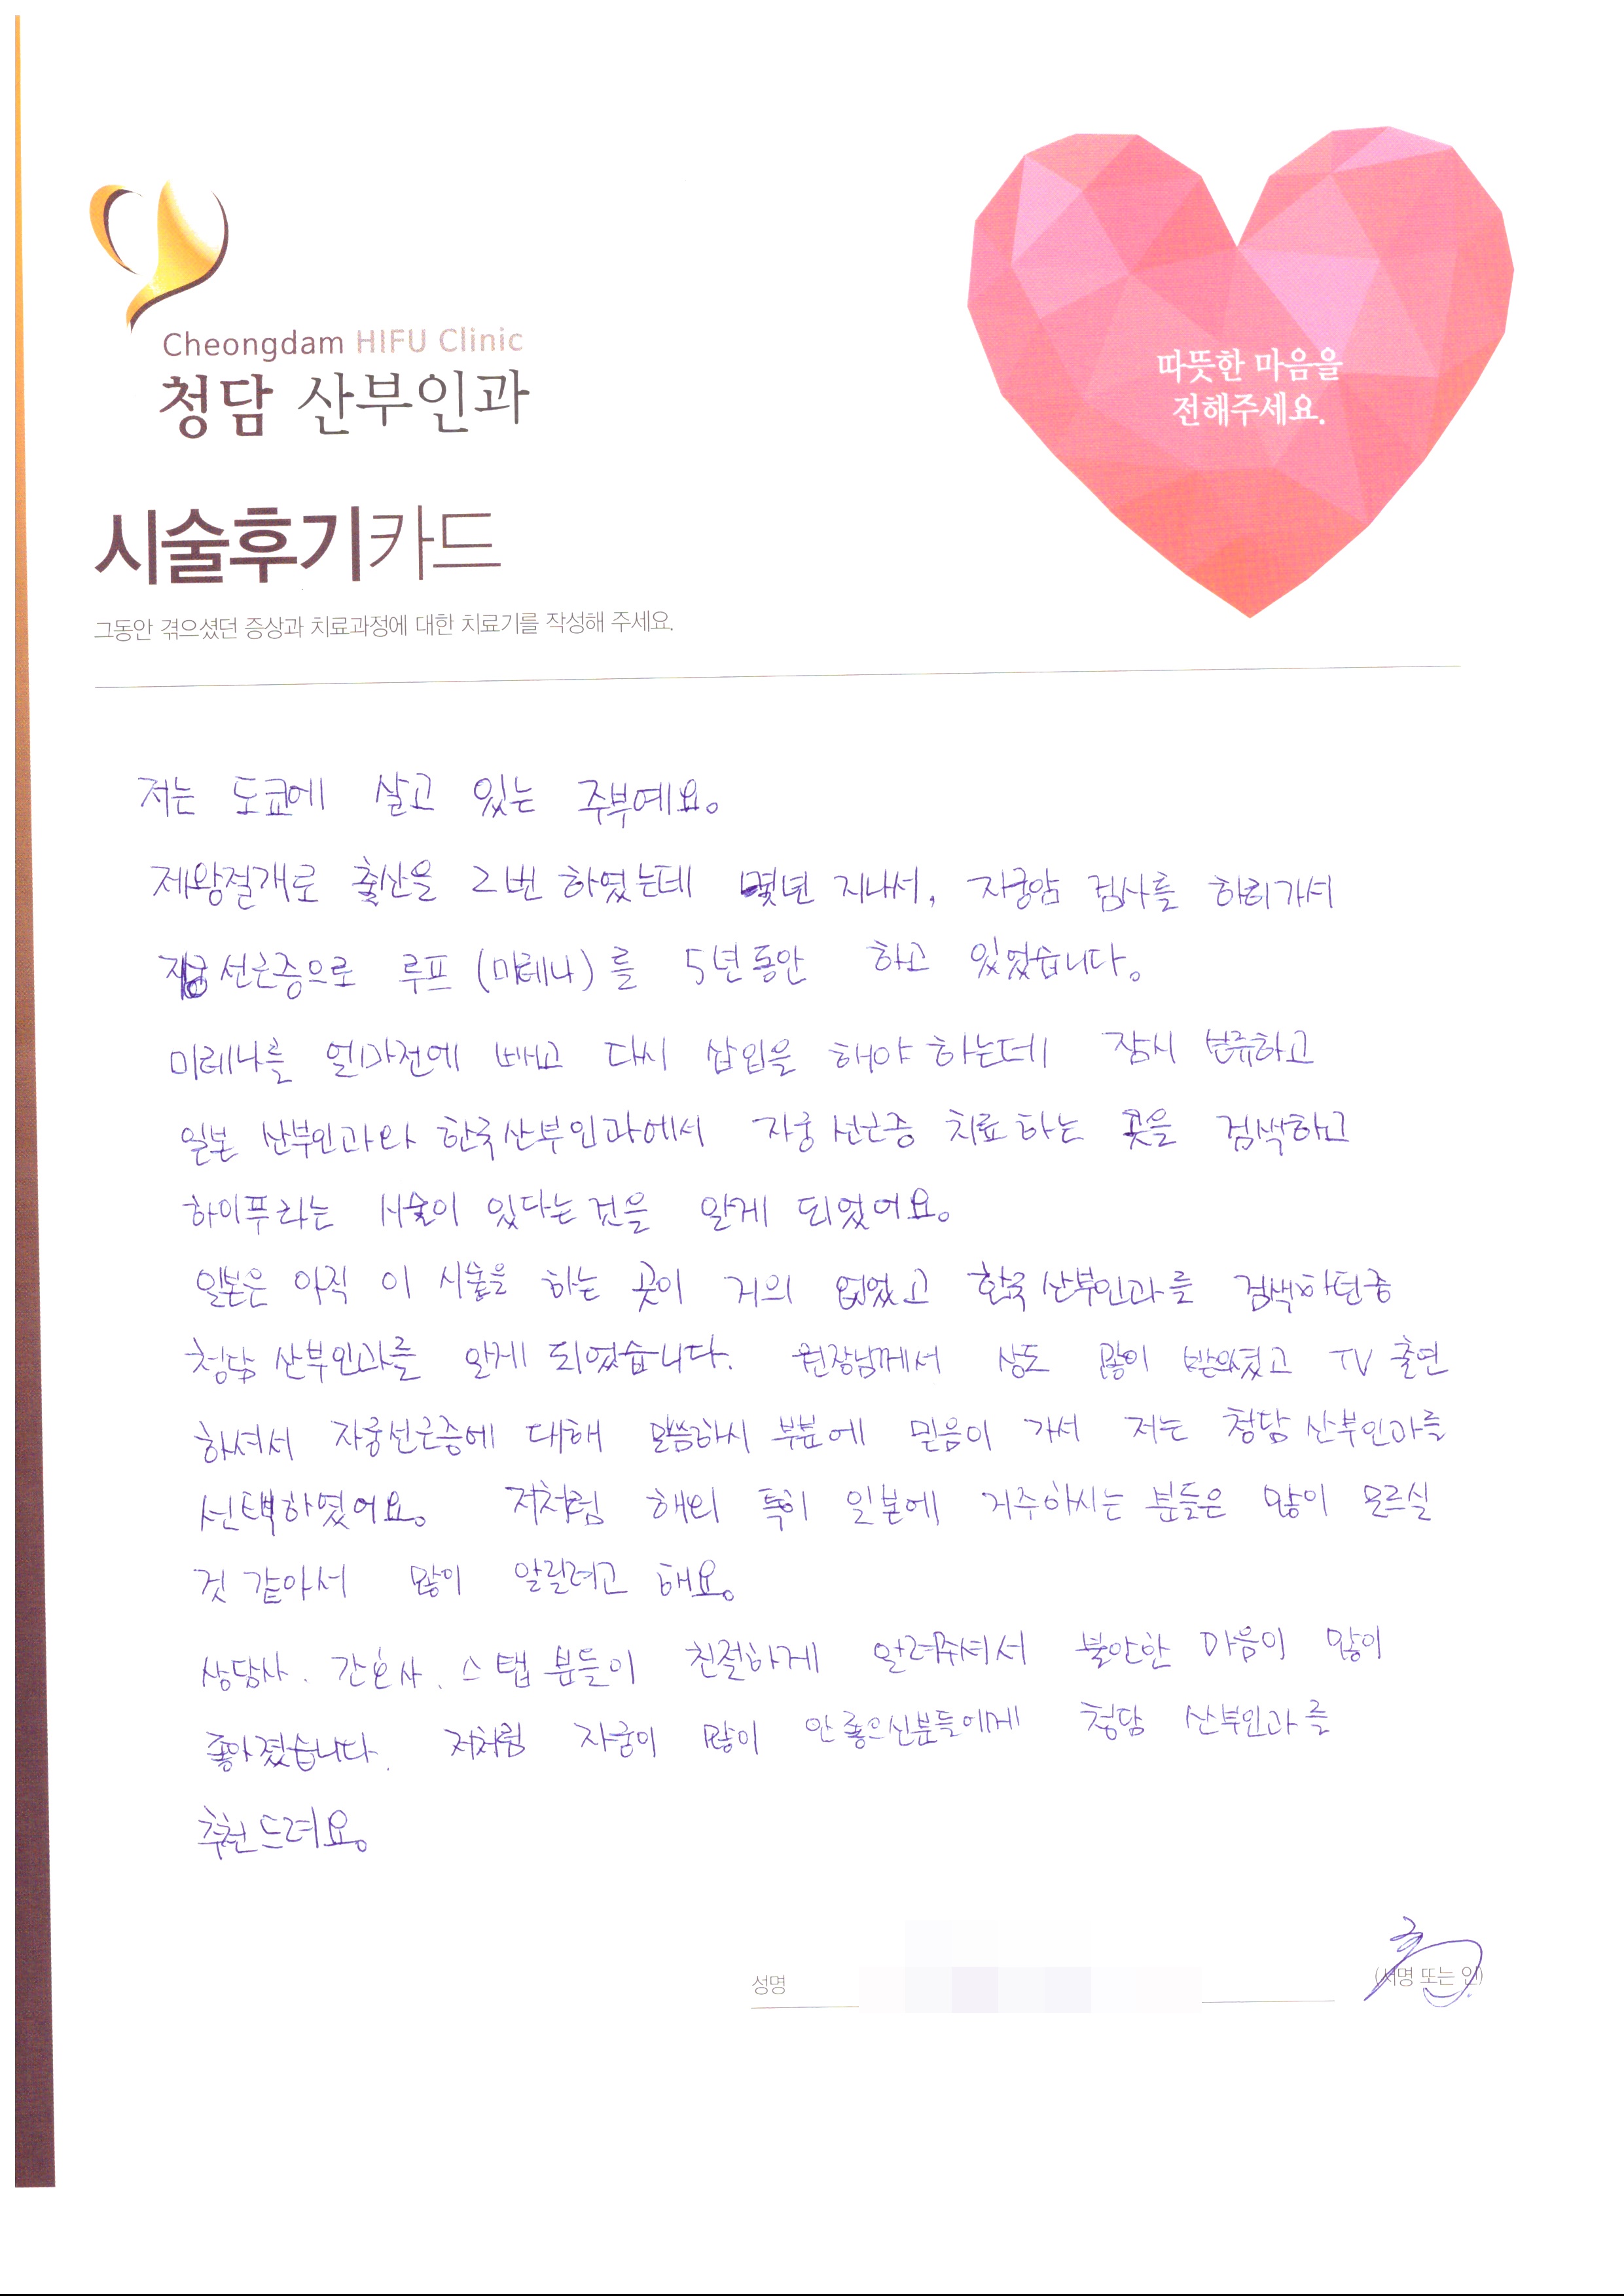 Cheongdam HIFU Clinic
청담 산부인과
따뜻한 마음을
전해주세요.
시술후기카드
그동안 겪으셨던 증상과 치료과정에 대한 치료기를 작성해 주세요.
저는 도쿄에 살고 있는 주부예요.
제왕절개로 출산을 2번 하였는데 몇년 지나서, 자궁암 검사를 하러가서
자궁선근증으로 루프 (미레나)를 5년동안 하고 있었습니다.
미레나를 얼마전에 빼고 다시 삽입을 해야 하는데 잠시 보류하고
일본 산부인과와 한국산부인과에서 자궁선근증 치료하는 곳을 검색하고
하이푸라는 시술이 있다는 것을 알게 되었어요.
일본은 아직 이 시술을 하는 곳이 거의 없었고 한국 산부인과를 검색하던중
청담 산부인과를 알게 되었습니다. 원장님께서 상도 많이 받으셨고 TV 출연
하셔서 자궁선근증에 대해 말씀하시 부분에 믿음이 가서 저는 청담 산부인과를
선택하였어요. 저처럼 해외 특히 일본에 거주하시는 분들은 많이 모르실
것 같아서 많이 알릴려고 해요.
상담사. 간호사. 스탭 분들이 친절하게 알려주셔서 불안한 마음이 많이
좋아졌습니다. 저처럼 자궁이 많이 안좋으신분들에게 청담 산부인과를
추천드려요.
성명 (서명 또는 인)